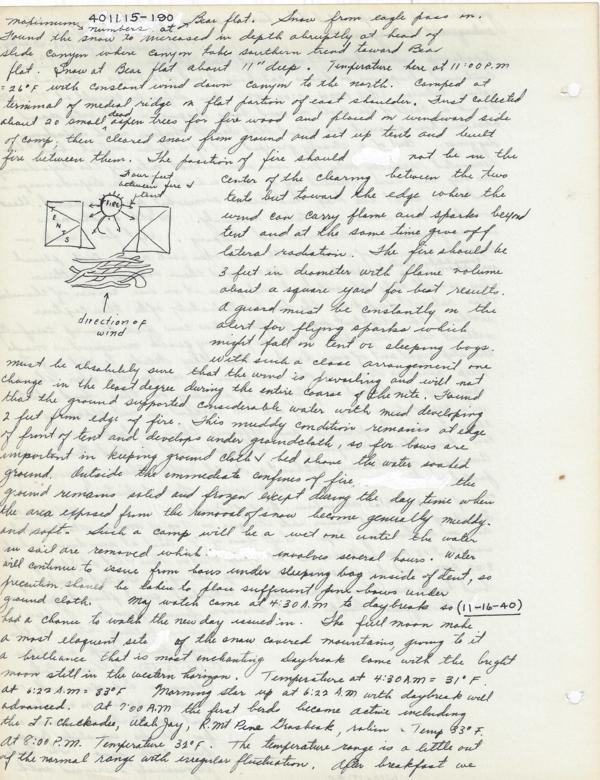 401115-190
maximum numbers at Bear flat. Snow from eagle pass on.
Found the snow to increased in depth abruptly at head of
slide canyon where canyon takes southern trend toward Bear
flat. Snow at Bear flat about 11" deep. Temperature here at 11:00 P.M
= 26°F with constant wind down canyon to the north. Camped at
terminal of medial ridge in flat portion of east shoulder. Just collected
about 20 small dead aspen trees for fire wood and placed on windward side
of camp, then cleared snow from ground and set up tents and built
fire between them. The position of fire should not be in the
center of the clearing between the two
tents but toward the edge where the
wind can carry flame and sparks beyond
tent and at the same time give off
lateral radiation. The fire should be
3 feet in diameter with flame volume
about a square yard for best results.
A guard must be constantly on the
alert for flying sparks which
might fall on tent or sleeping bags.
With such a close arrangement one
3 our feet
between fire &
tent
Fire
TENTS
direction of
wind
must be absolutely sure that the wind is prevailing and will not
change in the least degree during the entire coarse of the nite. Found
that the ground supported considerable water with mud developing
2 feet from edge of fire. This muddy condition remains at edge
of front of tent and develops under groundcloth, so fir bows are
important in keeping ground cloth & bed above the water soaked
ground. Outside the immediate confines of fire, the
ground remains solid and frozen except during the day time when
the area exposed from the removal of snow become generally muddy.
and soft. Such a camp will be a wet one until the water
in soil are removed which involves several hours. Water
will continue to issue from bows under sleeping bag inside of tent, so
precaution should be taken to place sufficient fir bows under
ground cloth. May watch came at 4:30 A.M. to daybreak so (11-16-40)
had a chance to watch the new day issued in. The full moon make
a most eloquent site of the snow covered mountains, giving to it
a brilliance that is most enchanting. Daybreak came with the bright
moon still in the western horizon. Temperature at 4:30 A.M = 31°F.
at 6:22 A.M = 33°F Morning star up at 6:22 A.M with daybreak well
advanced. At 7:00 A.M the first birds became active including
the L.T. Chickadee, Utah Jay, R.Mt Pine Grosbeak, robin - Temp 33°F.
At 8:00 P.M. Temperature 39°F. The temperature range is a little out
of the normal range with irregular fluctuation. After breakfast we